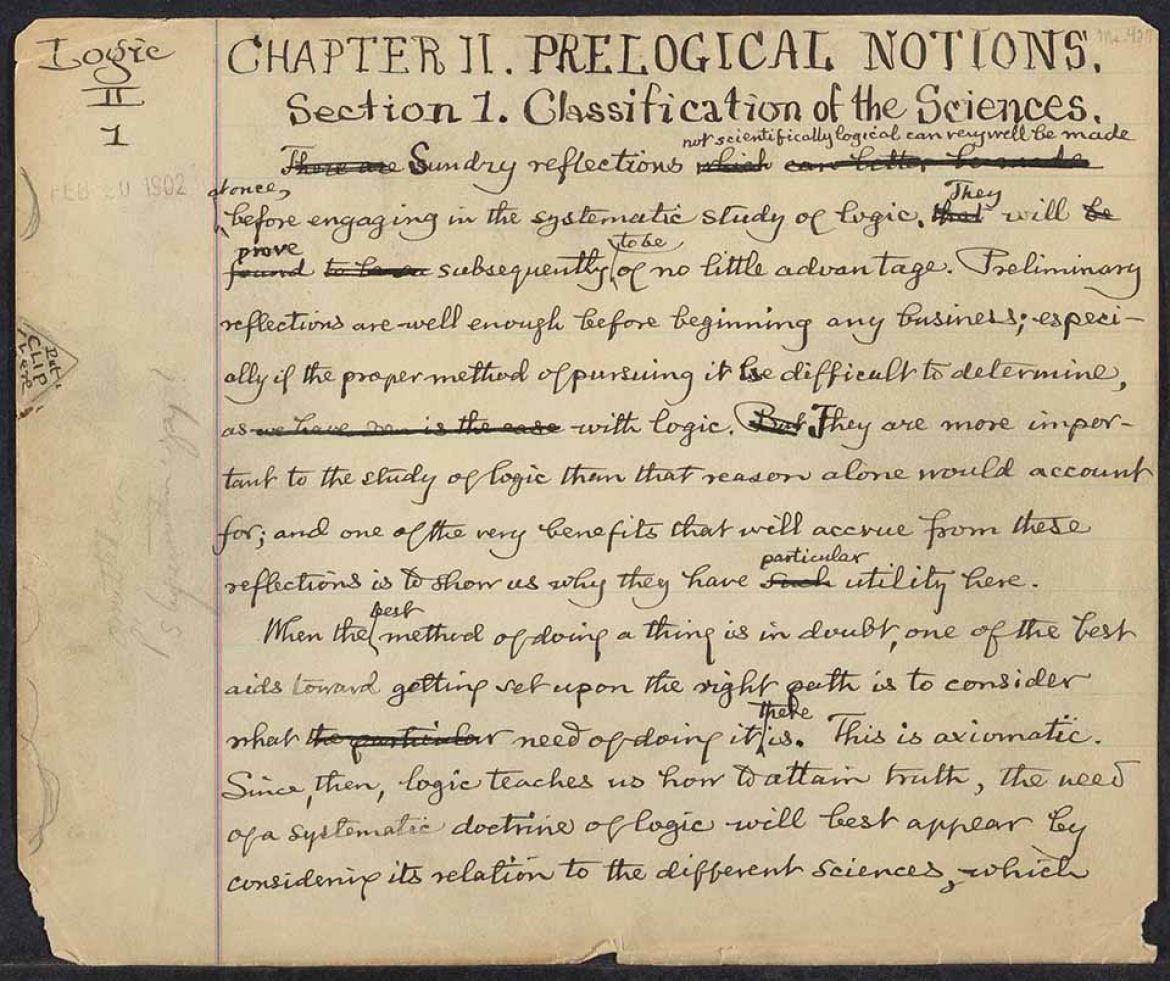 Logic
II
1
CHAPTER II. PRELOGICAL NOTIONS.
Section 1. Classification of the Sciences.
not scientifically logical can very well be made
There are Sundry reflections which can better be made
at once,
FEB 20 1902
They
before engaging in the systematic study of logic. that will be
prove
to be
found subsequently of no little advantage. Preliminary
reflections are well enough before beginning any business; especi-
ally if the proper method of pursuing it be difficult to determine,
as we have seen is the case with logic. But They are more impor-
tant to the study of logic than that reason alone would account
for; and one of the very benefits that will accrue from these
particular
reflections is to show us why they have such utility here.
best
When the method of doing a thing is in doubt, one of the best
aids toward getting set upon the right path is to consider
there
what the particular need of doing it is. This is axiomatic.
Since, then, logic teaches us how to attain truth, the need
of a systematic doctrine of logic will best appear by
considering its relation to the different sciences, which
Put
CLIP
here